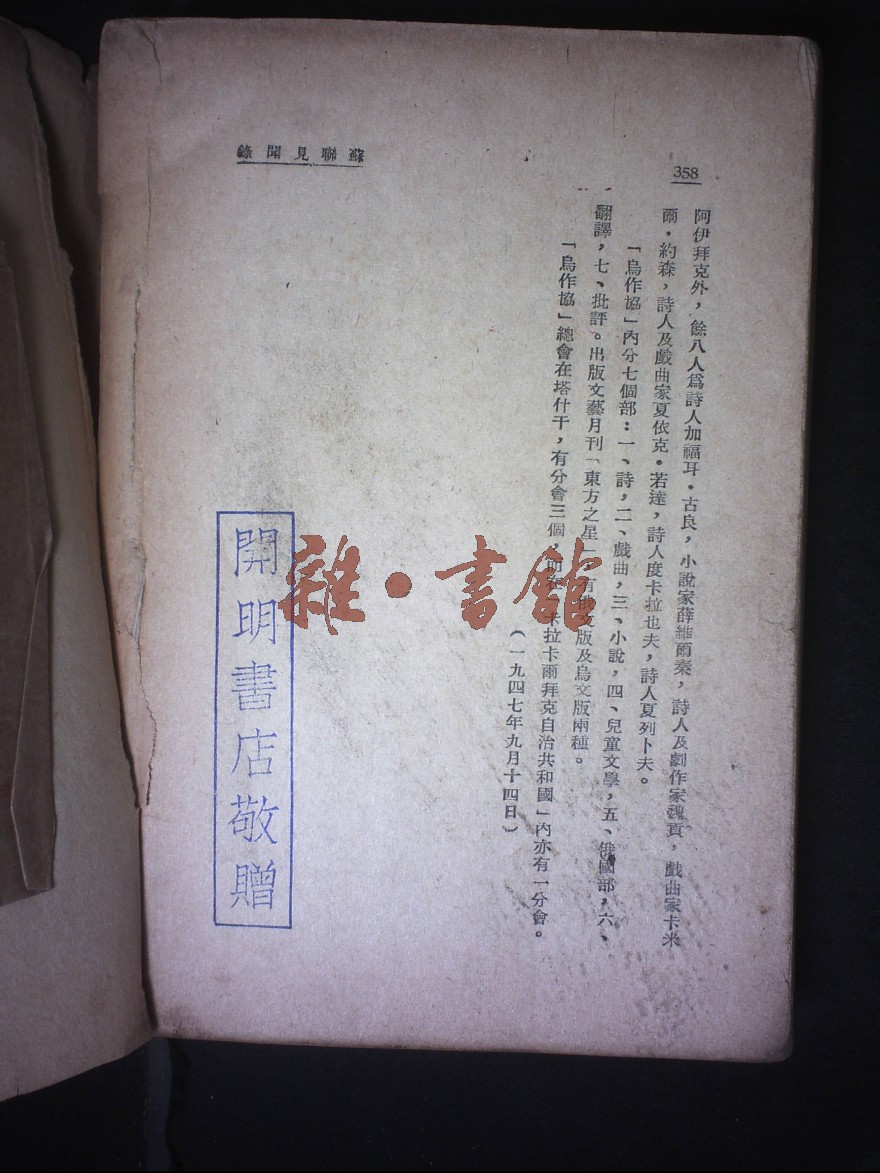 358
蘇聯見聞錄
阿伊拜克外，餘八人爲詩人加福耳・古良，小說家薛維爾秦，詩人及劇作家魏頁，戲曲家卡米
爾・約森，詩人及戲曲家夏依克・若達，詩人度卡拉也夫，詩人夏列卜夫。
「烏作協」內分七個部：一、詩，二、戲曲，三、小說，四、兒童文學，五、俄國部，六、
翻譯，七、批評。出版文藝月刊「東方之星」有俄文版及烏文版兩種。
「烏作協」總會在塔什干，有分會三個，卡拉卡爾拜克自治共和國」內亦有一分會。
（一九四七年九月十四日）
開明書店敬贈
雜・書館